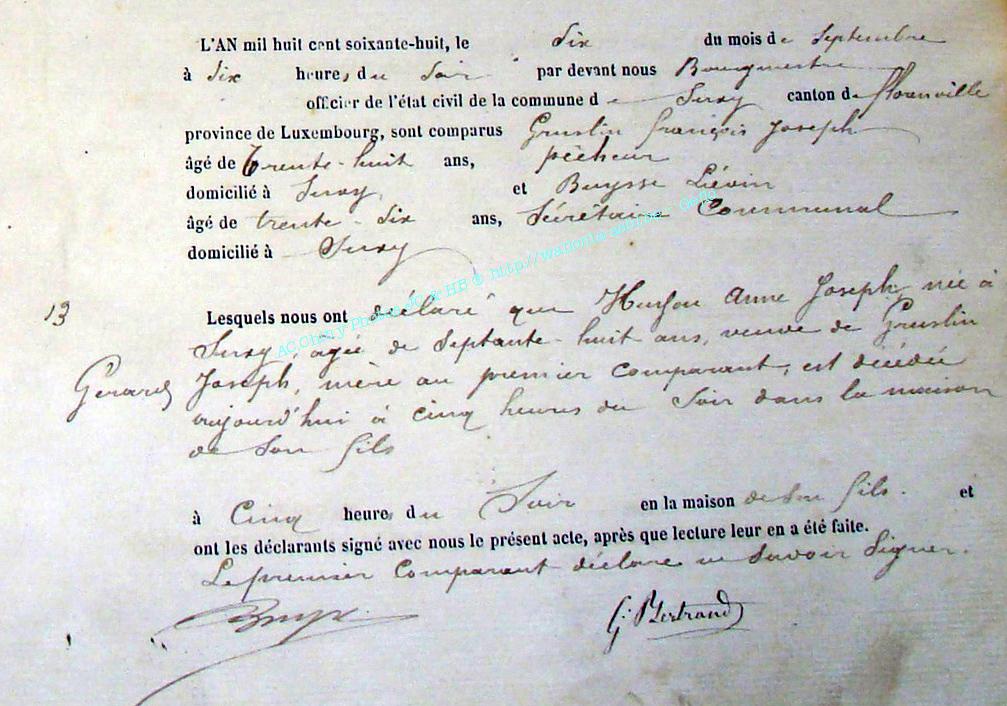 L'AN mil huit cent soixante-huit, le six du mois de Septembre
à six heures du soir par devant nous Bourgmestre
officier de l'état civil de la commune de Suxy canton de florenville
province de Luxembourg, sont comparus Gruslin françois Joseph
âgé de trente-huit ans, pêcheur
domicilié à Suxy, et Buysse Liévin
âgé de trente-six ans, Sécrétaire Communal
domicilié à Suxy
13
Lesquels nous ont déclaré que Anne Joseph, née à
Suxy, âgée de septante-huit ans, veuve de Gruslin
Gerard Joseph, mère au premier comparant, est décédée
aujourd'hui à cinq heures du soir dans la maison
de son fils
à Cinq heures du Soir en la maison de son fils. et
ont les déclarants signé avec nous le présent acte, après que lecture leur en a été faite.
Le premier Comparant déclare ne savoir signer.
Buysse G. Bertrand